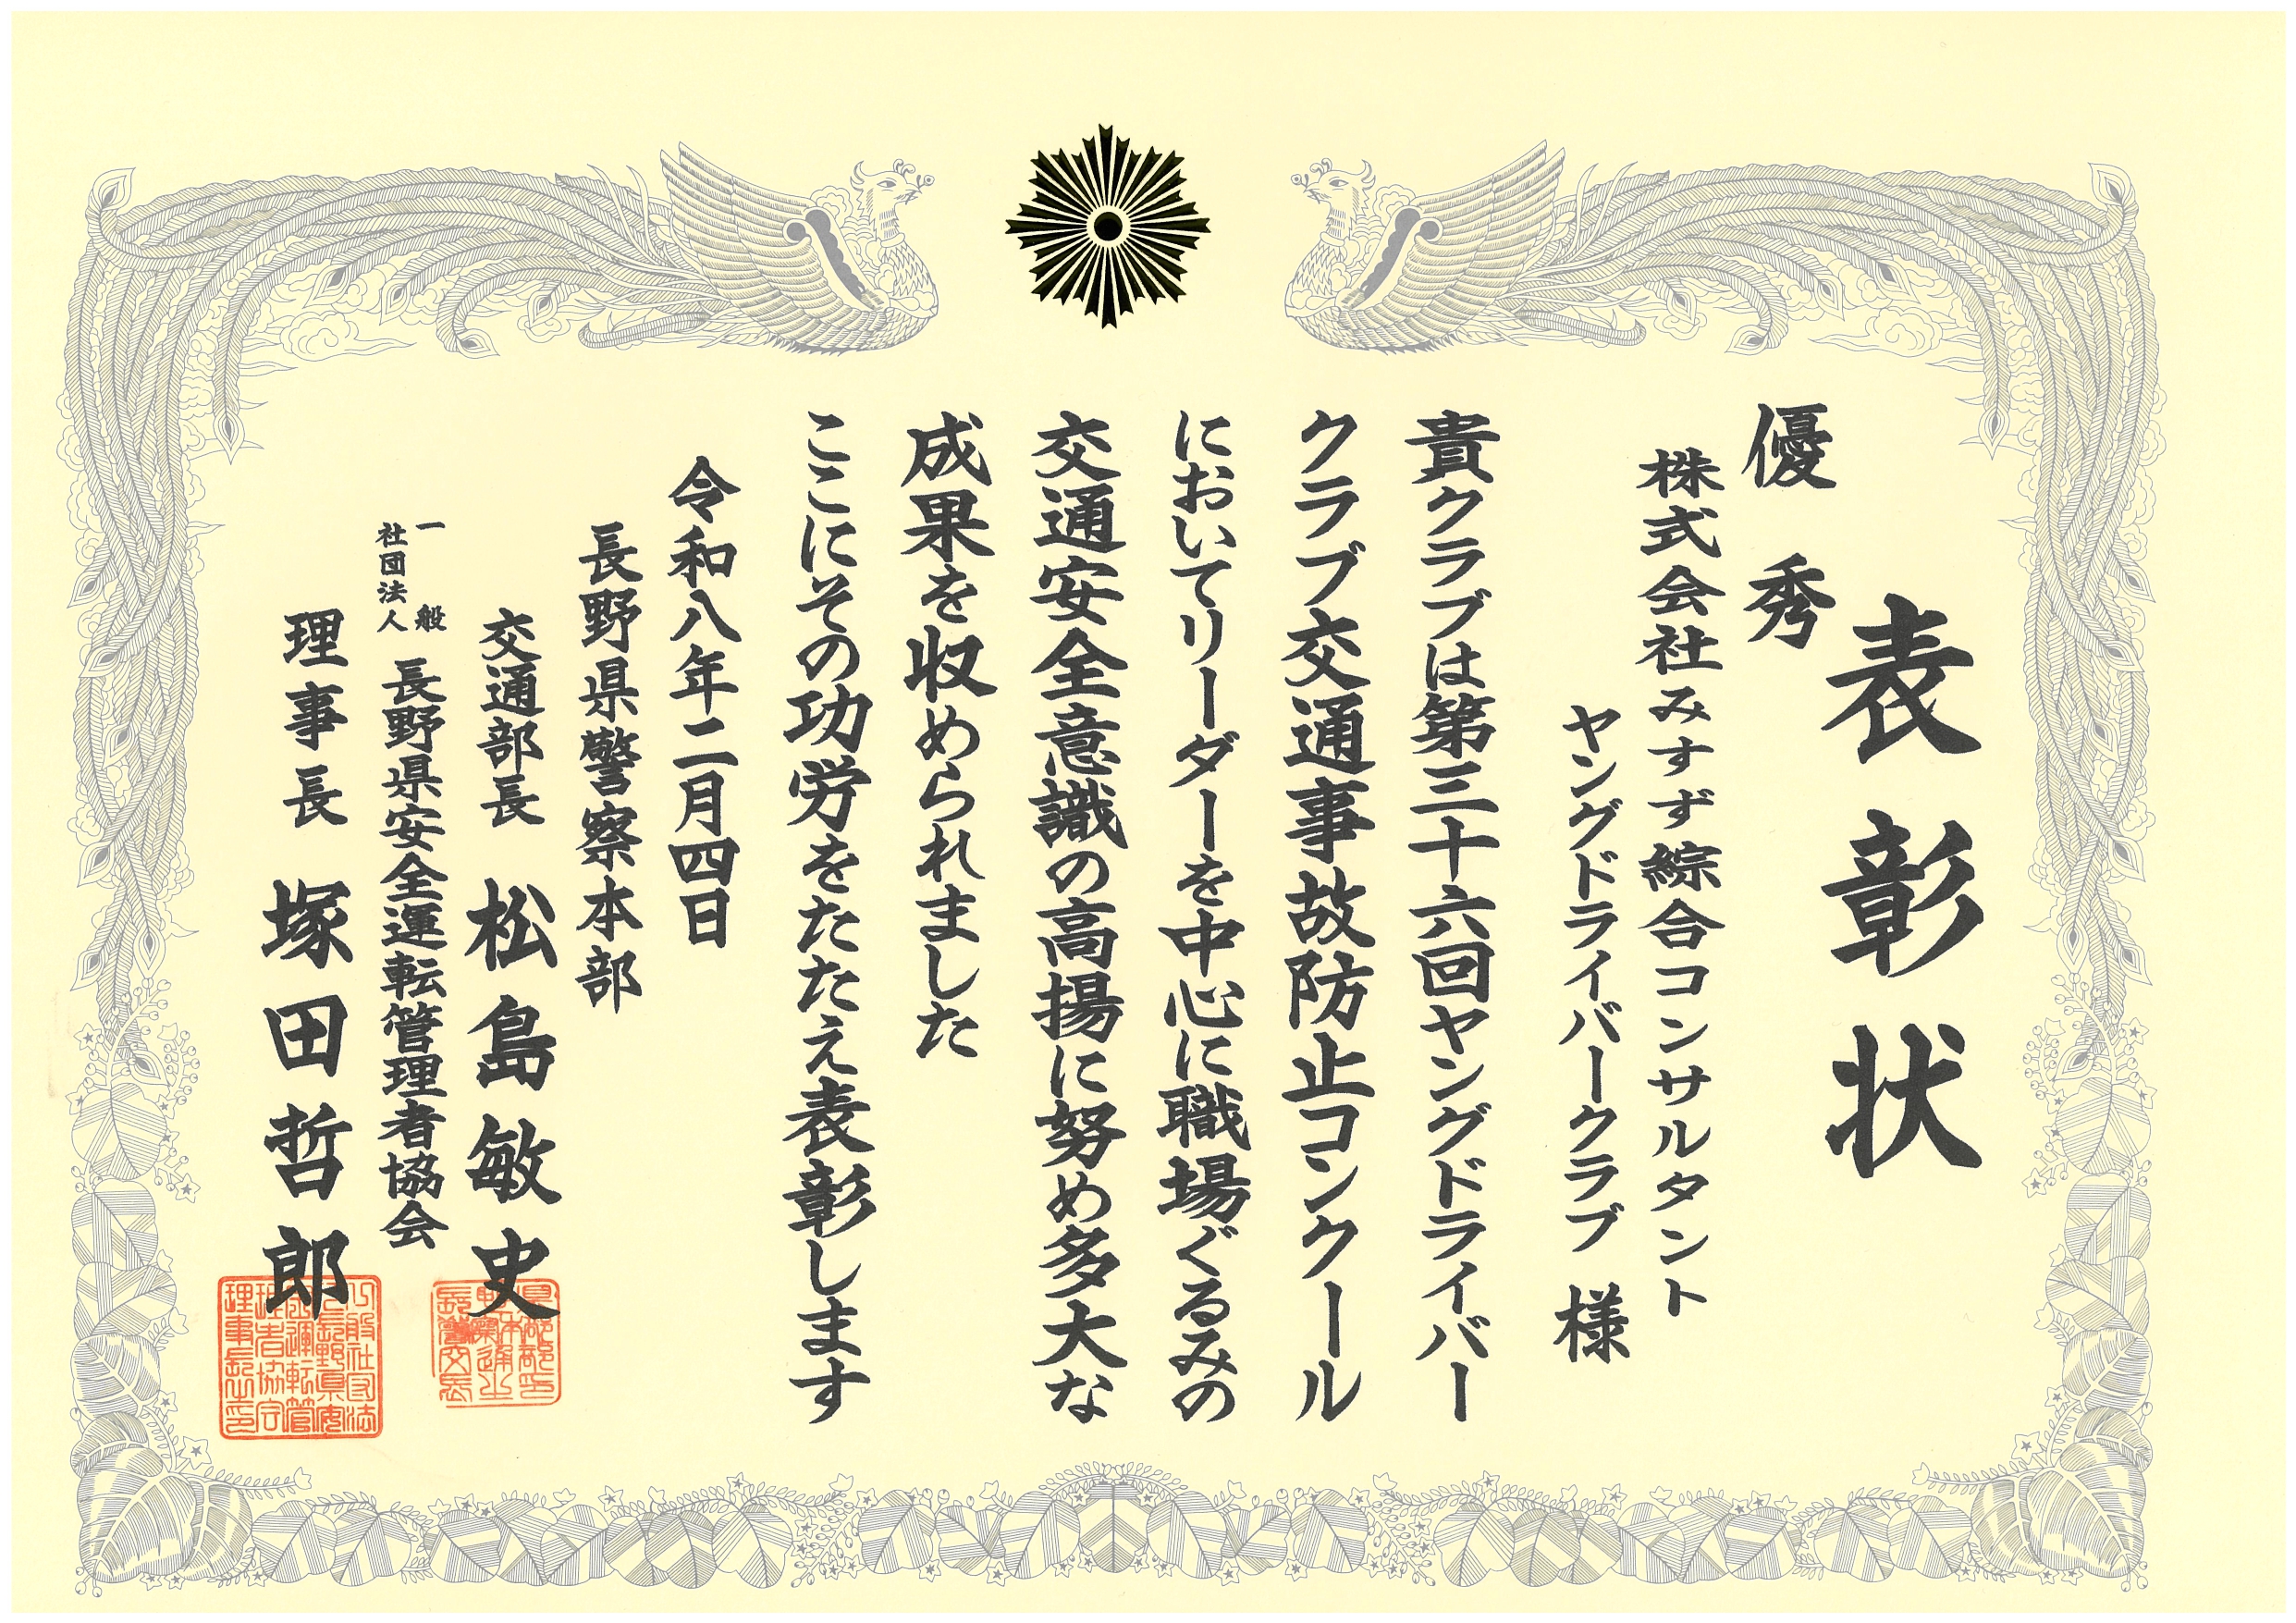 表彰状
優秀
株式会社みすず綜合コンサルタント
ヤングドライバークラブ 様
貴クラブは第三十六回ヤングドライバー
クラブ交通事故防止コンクール
においてリーダーを中心に職場ぐるみの
交通安全意識の高揚に努め多大な
成果を収められました
ここにその功労をたたえ表彰します
令和八年二月四日
長野県警察本部
交通部長 松島敏史
一般社団法人 長野県安全運転管理者協会
理事長 塚田哲郎